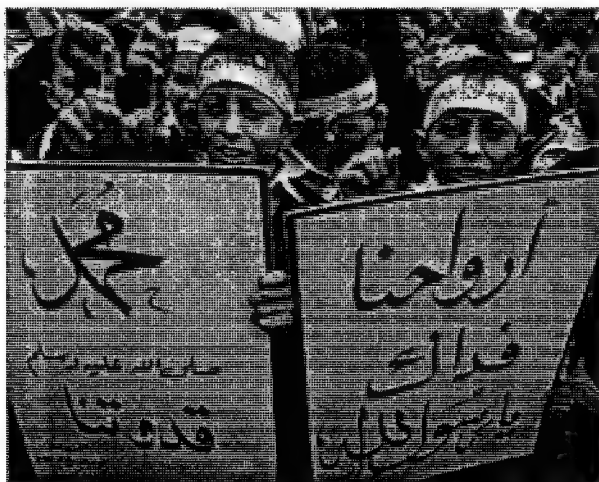 محمد
صلى الله عليه وسلم
قدوتنا
أرواحنا
فداك
يا رسول الله